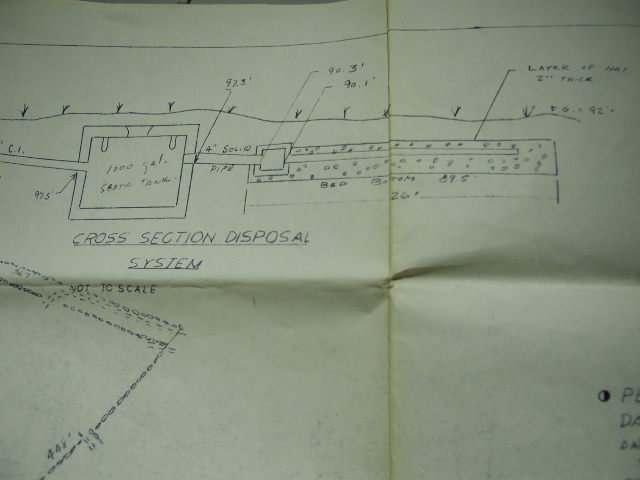 97.3'
90.3'
90.1'
LAYER OF HAY
2" THICK
F.G. = 92'
" C.I.
4" SOLID
PIPE
1000 gal.
SEPTIC TANK
97.5'
BED BOTTOM 89.5'
26'
CROSS SECTION DISPOSAL
SYSTEM
NOT TO SCALE
448'
PE
DA
DA